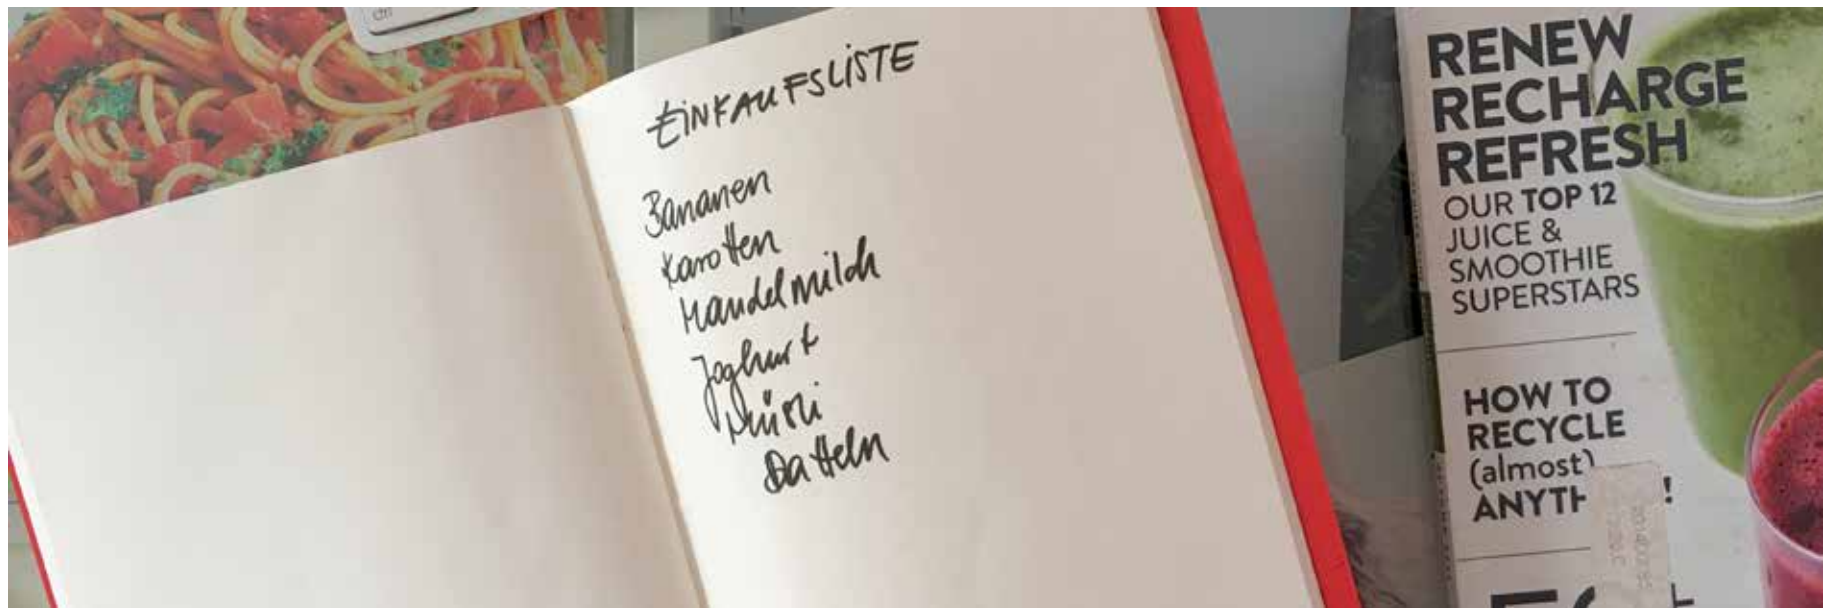 ctrl
EINKAUFSLISTE
Bananen
Karotten
Mandelmilch
Joghurt
Müsli
Datteln
RENEW
RECHARGE
REFRESH
OUR TOP 12
JUICE &
SMOOTHIE
SUPERSTARS
HOW TO
RECYCLE
(almost)
!